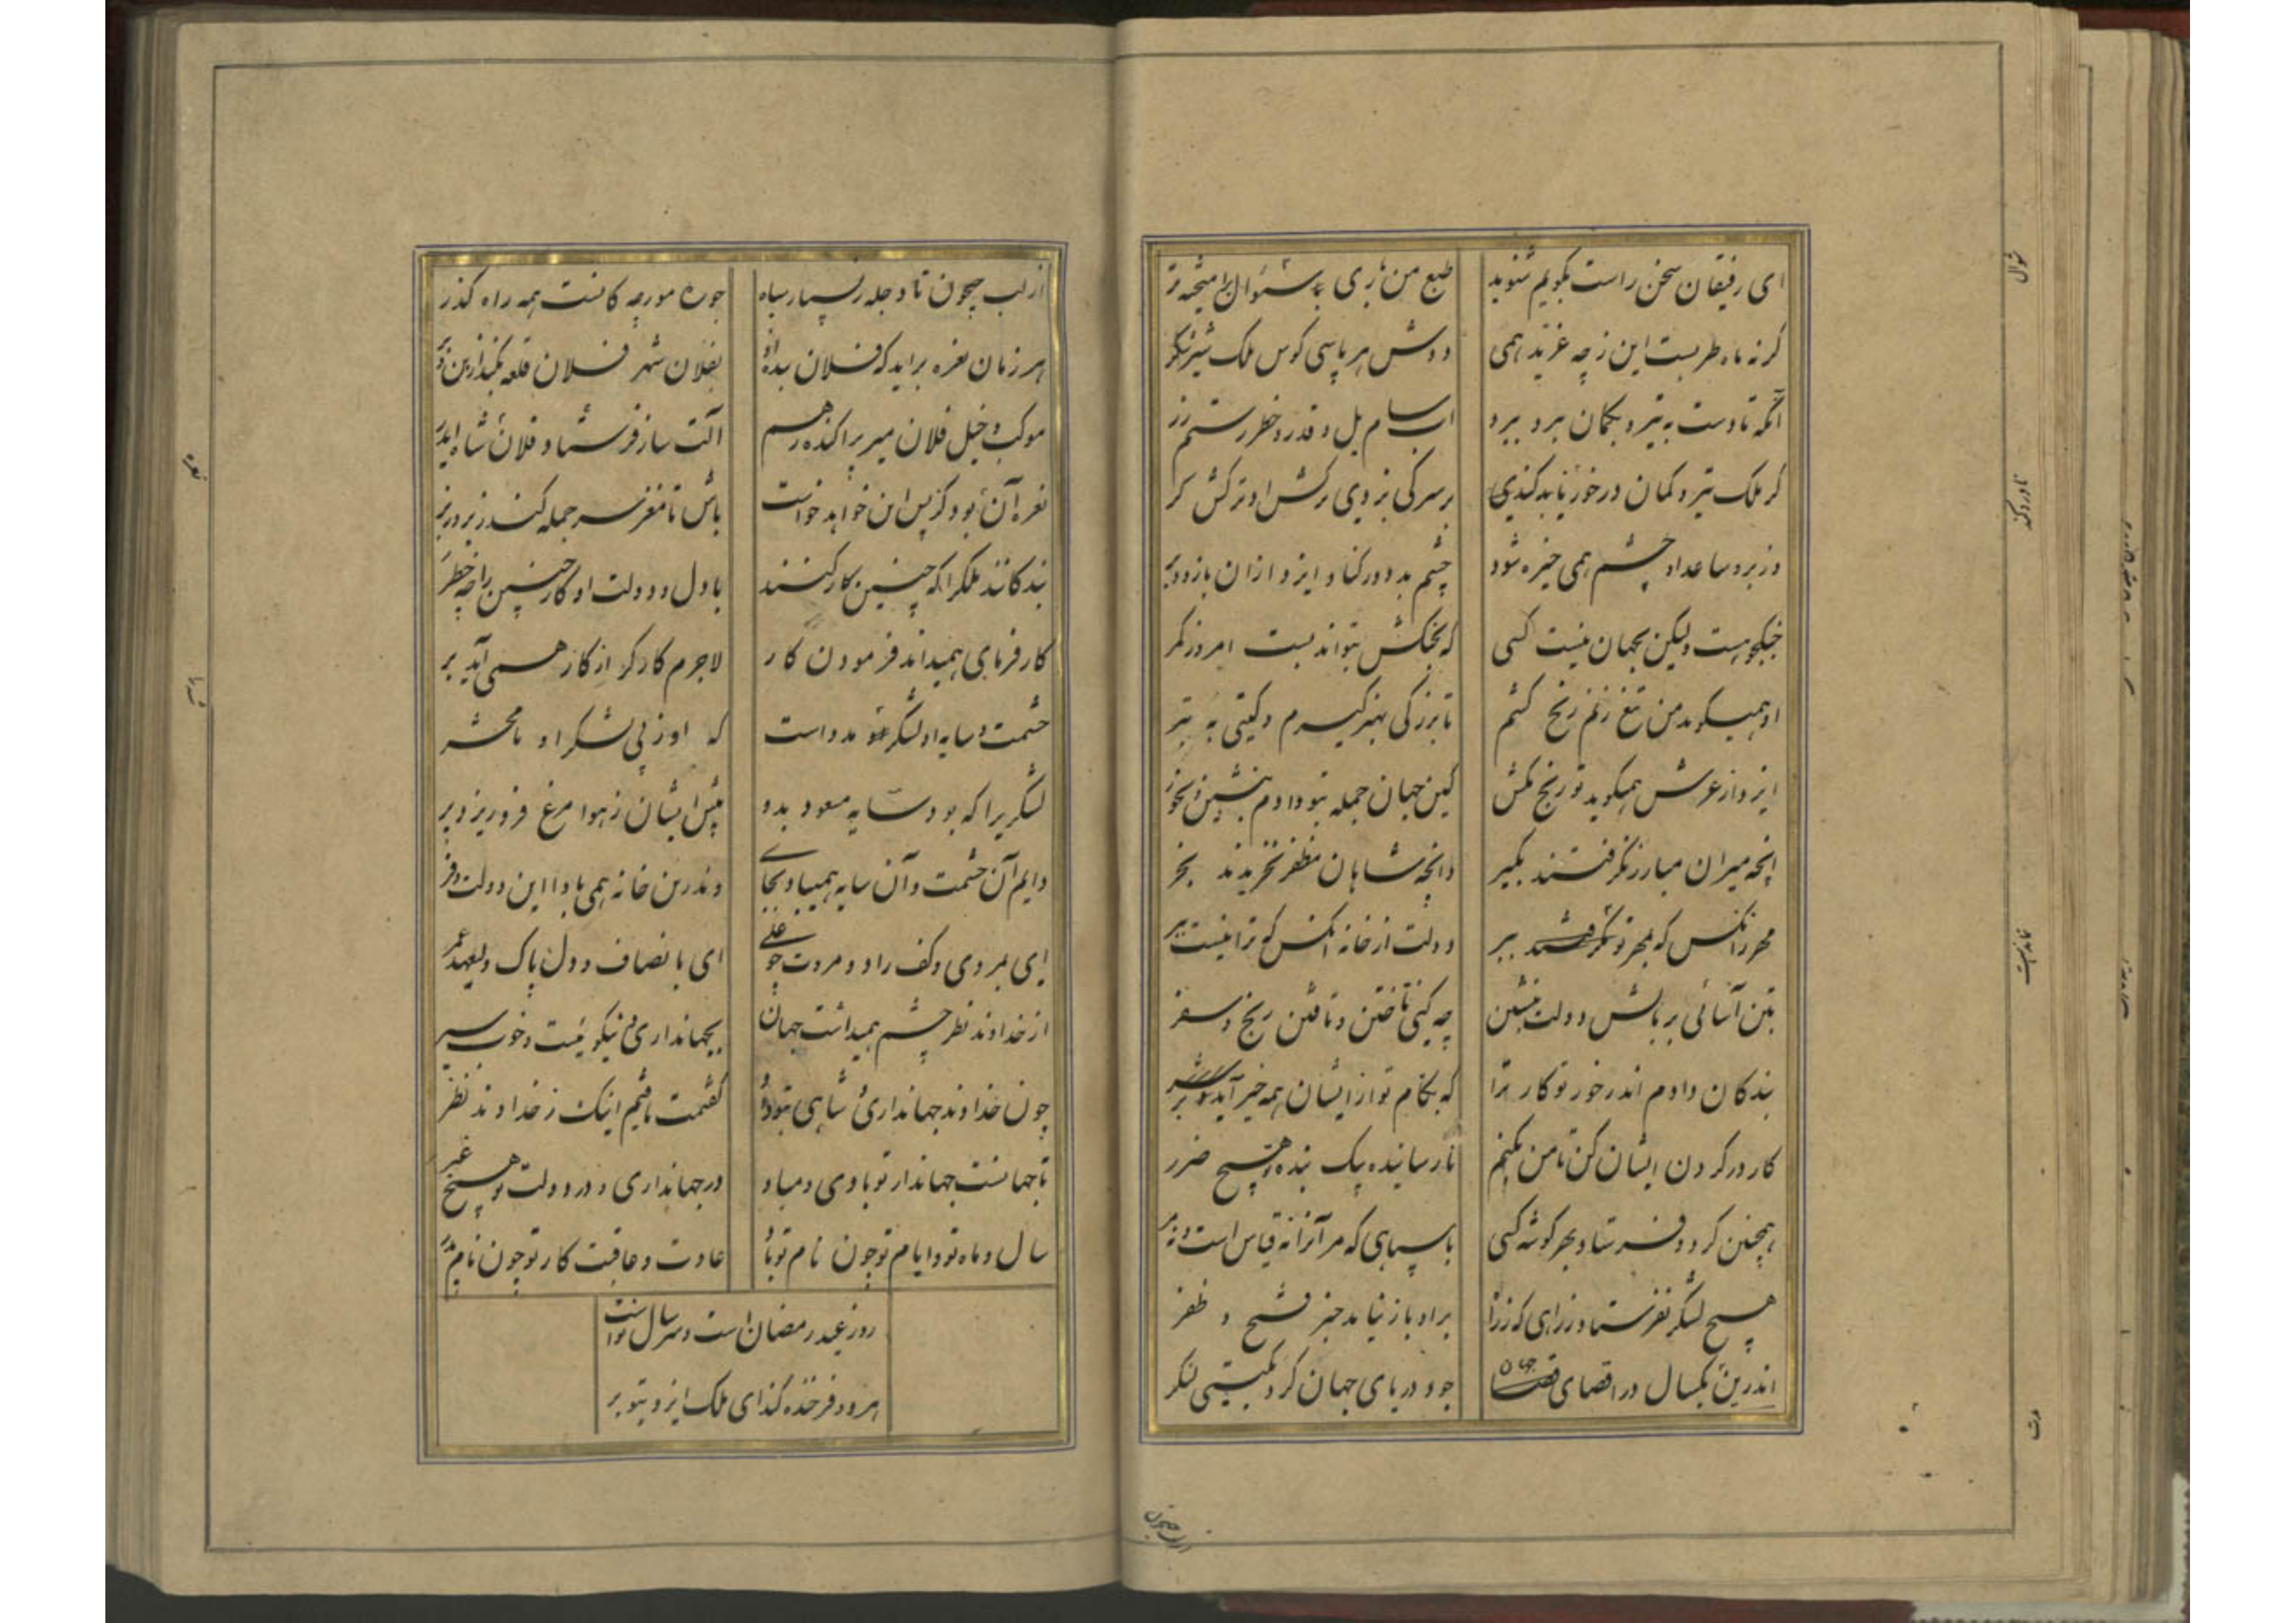 ای رفیقان سخن راست بگویم شنوید
طبع من زی شوال
گر نه ماه طربست این ز چه غرید همی
دوش هر پاسی کوس ملک
آنکه تا دست به تیر و بکمان برد ببرد
آب سام یل و قدر و خطر رستم زر
گر ملک تیر و کمان در خور
بر سر کی بزدی ترکش او ترکش گر
وز بر و ساعد او چشم همی خیره شود
چشم بد دور کناد ایزد ازان بازو و بر
جنگجویست ولیکن بجهان نیست کسی
که بجنگش بتواند بست امروز کمر
او همیگوید من تیغ زنم رنج کشم
تا بزرگی بهنر گیرم و گیتی به تبر
ایزد از عرش همیگوید تو رنج مکش
کین جهان جمله بتو دادم بنشین و بخور
آنچه میران مبارز نگرفتند بگیر
وانچه شاهان مظفر نخریدند بخر
مهر آنکس که بمهر تو ببر
دولت از خانه آنکس که ترا نیست ببر
بتن آسائی بر بالش دولت بنشین
چه کنی تاختن و تافتن رنج و سفر
بندگان دادم اندر خور تو کار ترا
که بکام تو از ایشان همه خیر آید
کار در گردن ایشان کن تا من بکنم
نارسانیده بیک بنده تو هیچ ضرر
همچنین کرد و فرستاد بهر گوشه کسی
با سپاهی که مر آنرا نه قیاس است و نه مر
هیچ لشکر نفرستاد ز رای که ز رای
بر او باز نیامد خبر فتح و ظفر
اندرین یکسال در اقصای جهان
جو و دریای جهان کرد بگیتی لشکر
از لب جیحون تا دجله ز بسیار سپاه
چون ره مورچه گانست همه راه گذر
هر زمان نعره براید که فلان
بفلان شهر فلان قلعه بکند از بن و بر
موکب و خیل فلان میر پراکنده ز هم
آلت ساز فرستاد فلان شاه ایدر
نعره آن بود کزین پس خواهد خواست
باش تا مغز سر جمله کند زیر و زبر
بندگانند ملک را که چنین کار کنند
با دل و دولت او کار چنین را چه خطر
کار فرمای همیداند فرمودن کار
لاجرم کارگر از کار همی آید بر
حشمت و سایه او لشکر مدد است
که او زپی لشکر او تا محشر
لشگری را که بود سایه مسعود بدو
پیش ایشان ز هوا مرغ فرو ریزد پر
دایم آن حشمت و آن سایه همیباد بجای
وندرین خانه همی باد این دولت و فر
ای بمردی و کف راد و مروت چو علی
ای بانصاف و دل پاک و بعهد عمر
از خداوند نظر چشم همیداشت جهان
بجهانداری نیکو نیت و خوب سیر
چون خداوند جهانداری شاهی بتو داد
گفتمت یافتم اینک ز خداوند نظر
تا جهانست جهاندار تو بادی و مباد
در جهانداری و در دولت تو هیچ غیر
سال و ماه تو و ایام تو چون نام تو باد
عادت و عاقبت کار تو چون نام پدر
روز عید رمضان است و سر سال نو است
هر دو فرخنده کند ای ملک ایزد بتو بر